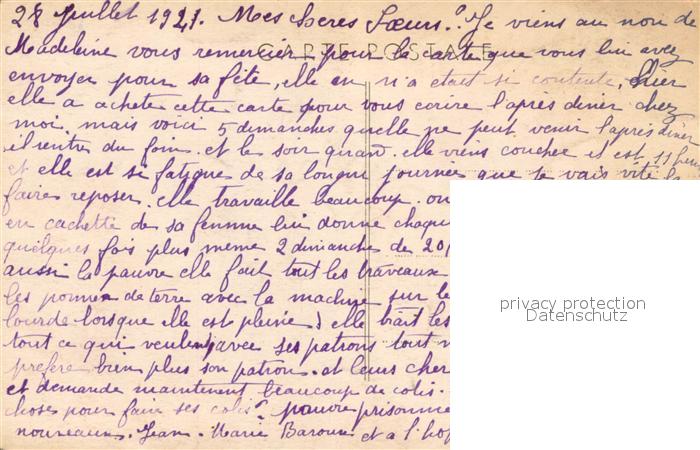 28 Juillet 1921. Mes Chères Sœurs. Je viens au nom de
CARTE POSTALE
Madeleine vous remercier pour la carte que vous lui avez
envoyer pour sa fête, elle en n'a etait si contente, hier
elle a acheté cette carte pour vous ecrire l'après diner chez
moi. mais voici 5 dimanches qu'elle ne peut venir l'après diner
il rentre du foin. et le soir quant elle viens coucher il est 11 heu
et elle est si fatiguée de sa longue journée que je vais vite la
faire reposer. elle travaille beaucoup. on
en cachette de sa femme lui donne chaqu
quelques fois plus meme 2 dimanches de 20
aussi la pauvre elle fait tout les traveaux
les pommes de terre avec la machine sur le
lourde lorsque elle est pleine elle bat les
tout ce qui veulent avec ses patrons tout
prefere bien plus son patron. et leurs cher
et demande maintenant beaucoup de colis.
choses pour faire ses colis? pauvre prisonnie
nouveaux. Jean. Marie Baroux et a l'hop
privacy protection
Datenschutz